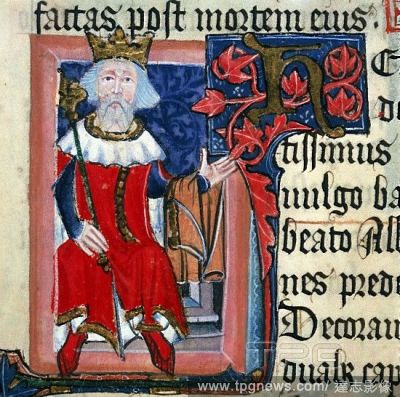 factas post mortem eius.
H
de
tissimus
uulgo ba
beato Alb
nes prede
Decoraui
duale cap
TPG
www.tpgnews.com/ 達志影像